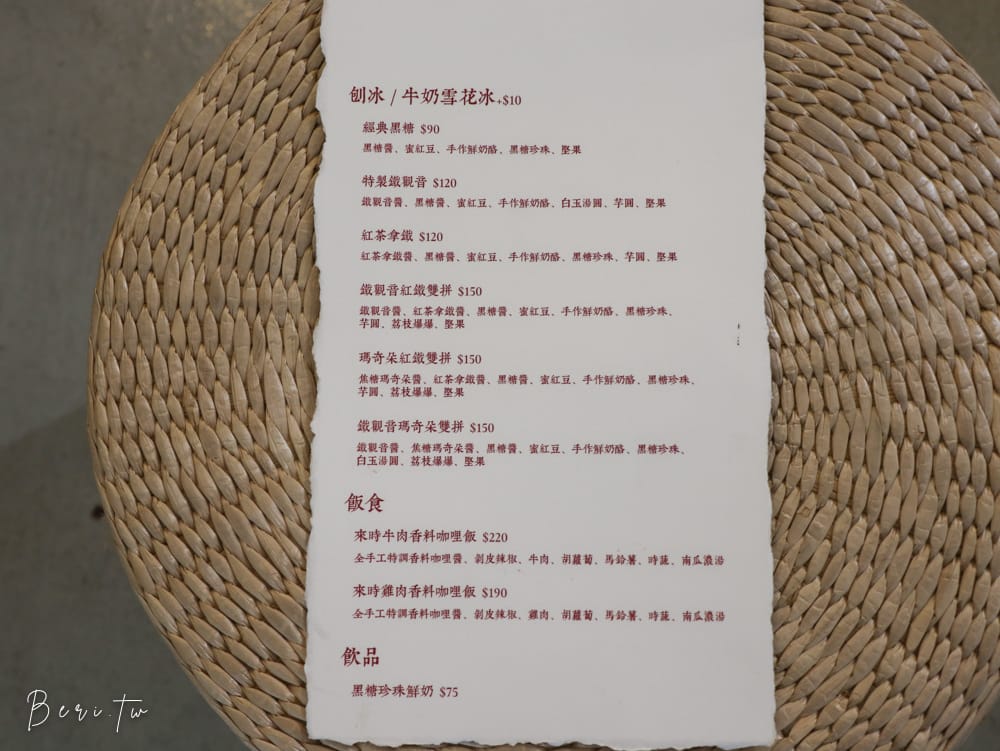 刨冰 / 牛奶雪花冰+$10
經典黑糖 $90
黑糖醬、蜜紅豆、手作鮮奶酪、黑糖珍珠、堅果
特製鐵觀音 $120
鐵觀音醬、黑糖醬、蜜紅豆、手作鮮奶酪、白玉湯圓、芋圓、堅果
紅茶拿鐵 $120
紅茶拿鐵醬、黑糖醬、蜜紅豆、手作鮮奶酪、黑糖珍珠、芋圓、堅果
鐵觀音紅鐵雙拼 $150
鐵觀音醬、紅茶拿鐵醬、黑糖醬、蜜紅豆、手作鮮奶酪、黑糖珍珠、
芋圓、荔枝爆爆、堅果
瑪奇朵紅鐵雙拼 $150
焦糖瑪奇朵醬、紅茶拿鐵醬、黑糖醬、蜜紅豆、手作鮮奶酪、黑糖珍珠、
芋圓、荔枝爆爆、堅果
鐵觀音瑪奇朵雙拼 $150
鐵觀音醬、焦糖瑪奇朵醬、黑糖醬、蜜紅豆、手作鮮奶酪、黑糖珍珠、
白玉湯圓、荔枝爆爆、堅果
飯食
來時牛肉香料咖哩飯 $220
全手工特調香料咖哩醬、剝皮辣椒、牛肉、胡蘿蔔、馬鈴薯、時蔬、南瓜濃湯
來時雞肉香料咖哩飯 $190
全手工特調香料咖哩醬、剝皮辣椒、雞肉、胡蘿蔔、馬鈴薯、時蔬、南瓜濃湯
飲品
黑糖珍珠鮮奶 $75
Beri.tw